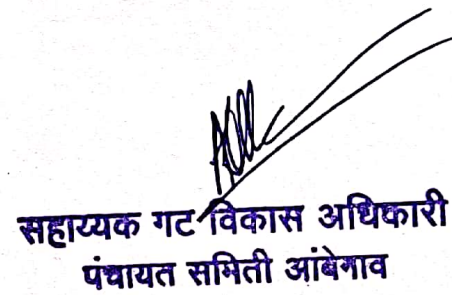 सहाय्यक गट विकास अधिकारी
पंचायत समिती आंबेगाव